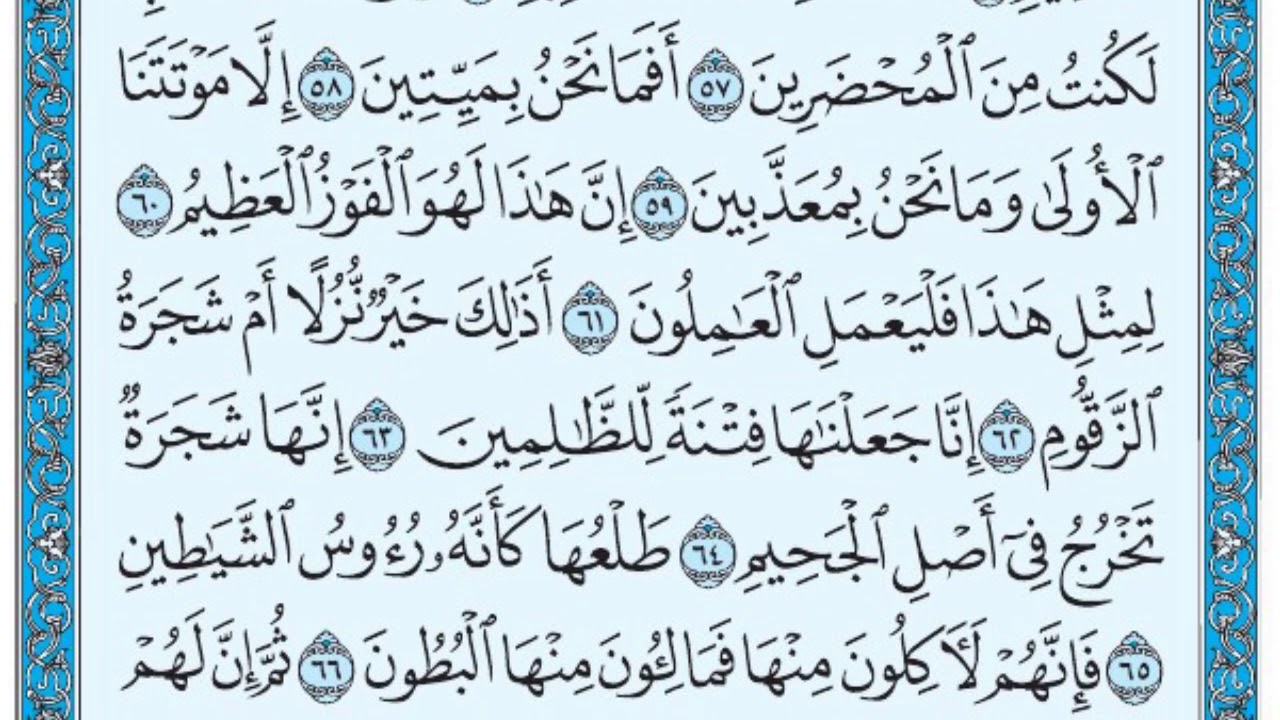 لَكُنتُ مِنَ ٱلْمُحْضَرِينَ ٥٧ أَفَمَا نَحْنُ بِمَيِّتِينَ ٥٨ إِلَّا مَوْتَتَنَا
ٱلْأُولَىٰ وَمَا نَحْنُ بِمُعَذَّبِينَ ٥٩ إِنَّ هَـٰذَا لَهُوَ ٱلْفَوْزُ ٱلْعَظِيمُ ٦٠
لِمِثْلِ هَـٰذَا فَلْيَعْمَلِ ٱلْعَـٰمِلُونَ ٦١ أَذَٰلِكَ خَيْرٌ نُّزُلًا أَمْ شَجَرَةُ
ٱلزَّقُّومِ ٦٢ إِنَّا جَعَلْنَـٰهَا فِتْنَةً لِّلظَّـٰلِمِينَ ٦٣ إِنَّهَا شَجَرَةٌ
تَخْرُجُ فِىٓ أَصْلِ ٱلْجَحِيمِ ٦٤ طَلْعُهَا كَأَنَّهُۥ رُءُوسُ ٱلشَّيَـٰطِينِ
٦٥ فَإِنَّهُمْ لَـَٔاكِلُونَ مِنْهَا فَمَالِـُٔونَ مِنْهَا ٱلْبُطُونَ ٦٦ ثُمَّ إِنَّ لَهُمْ